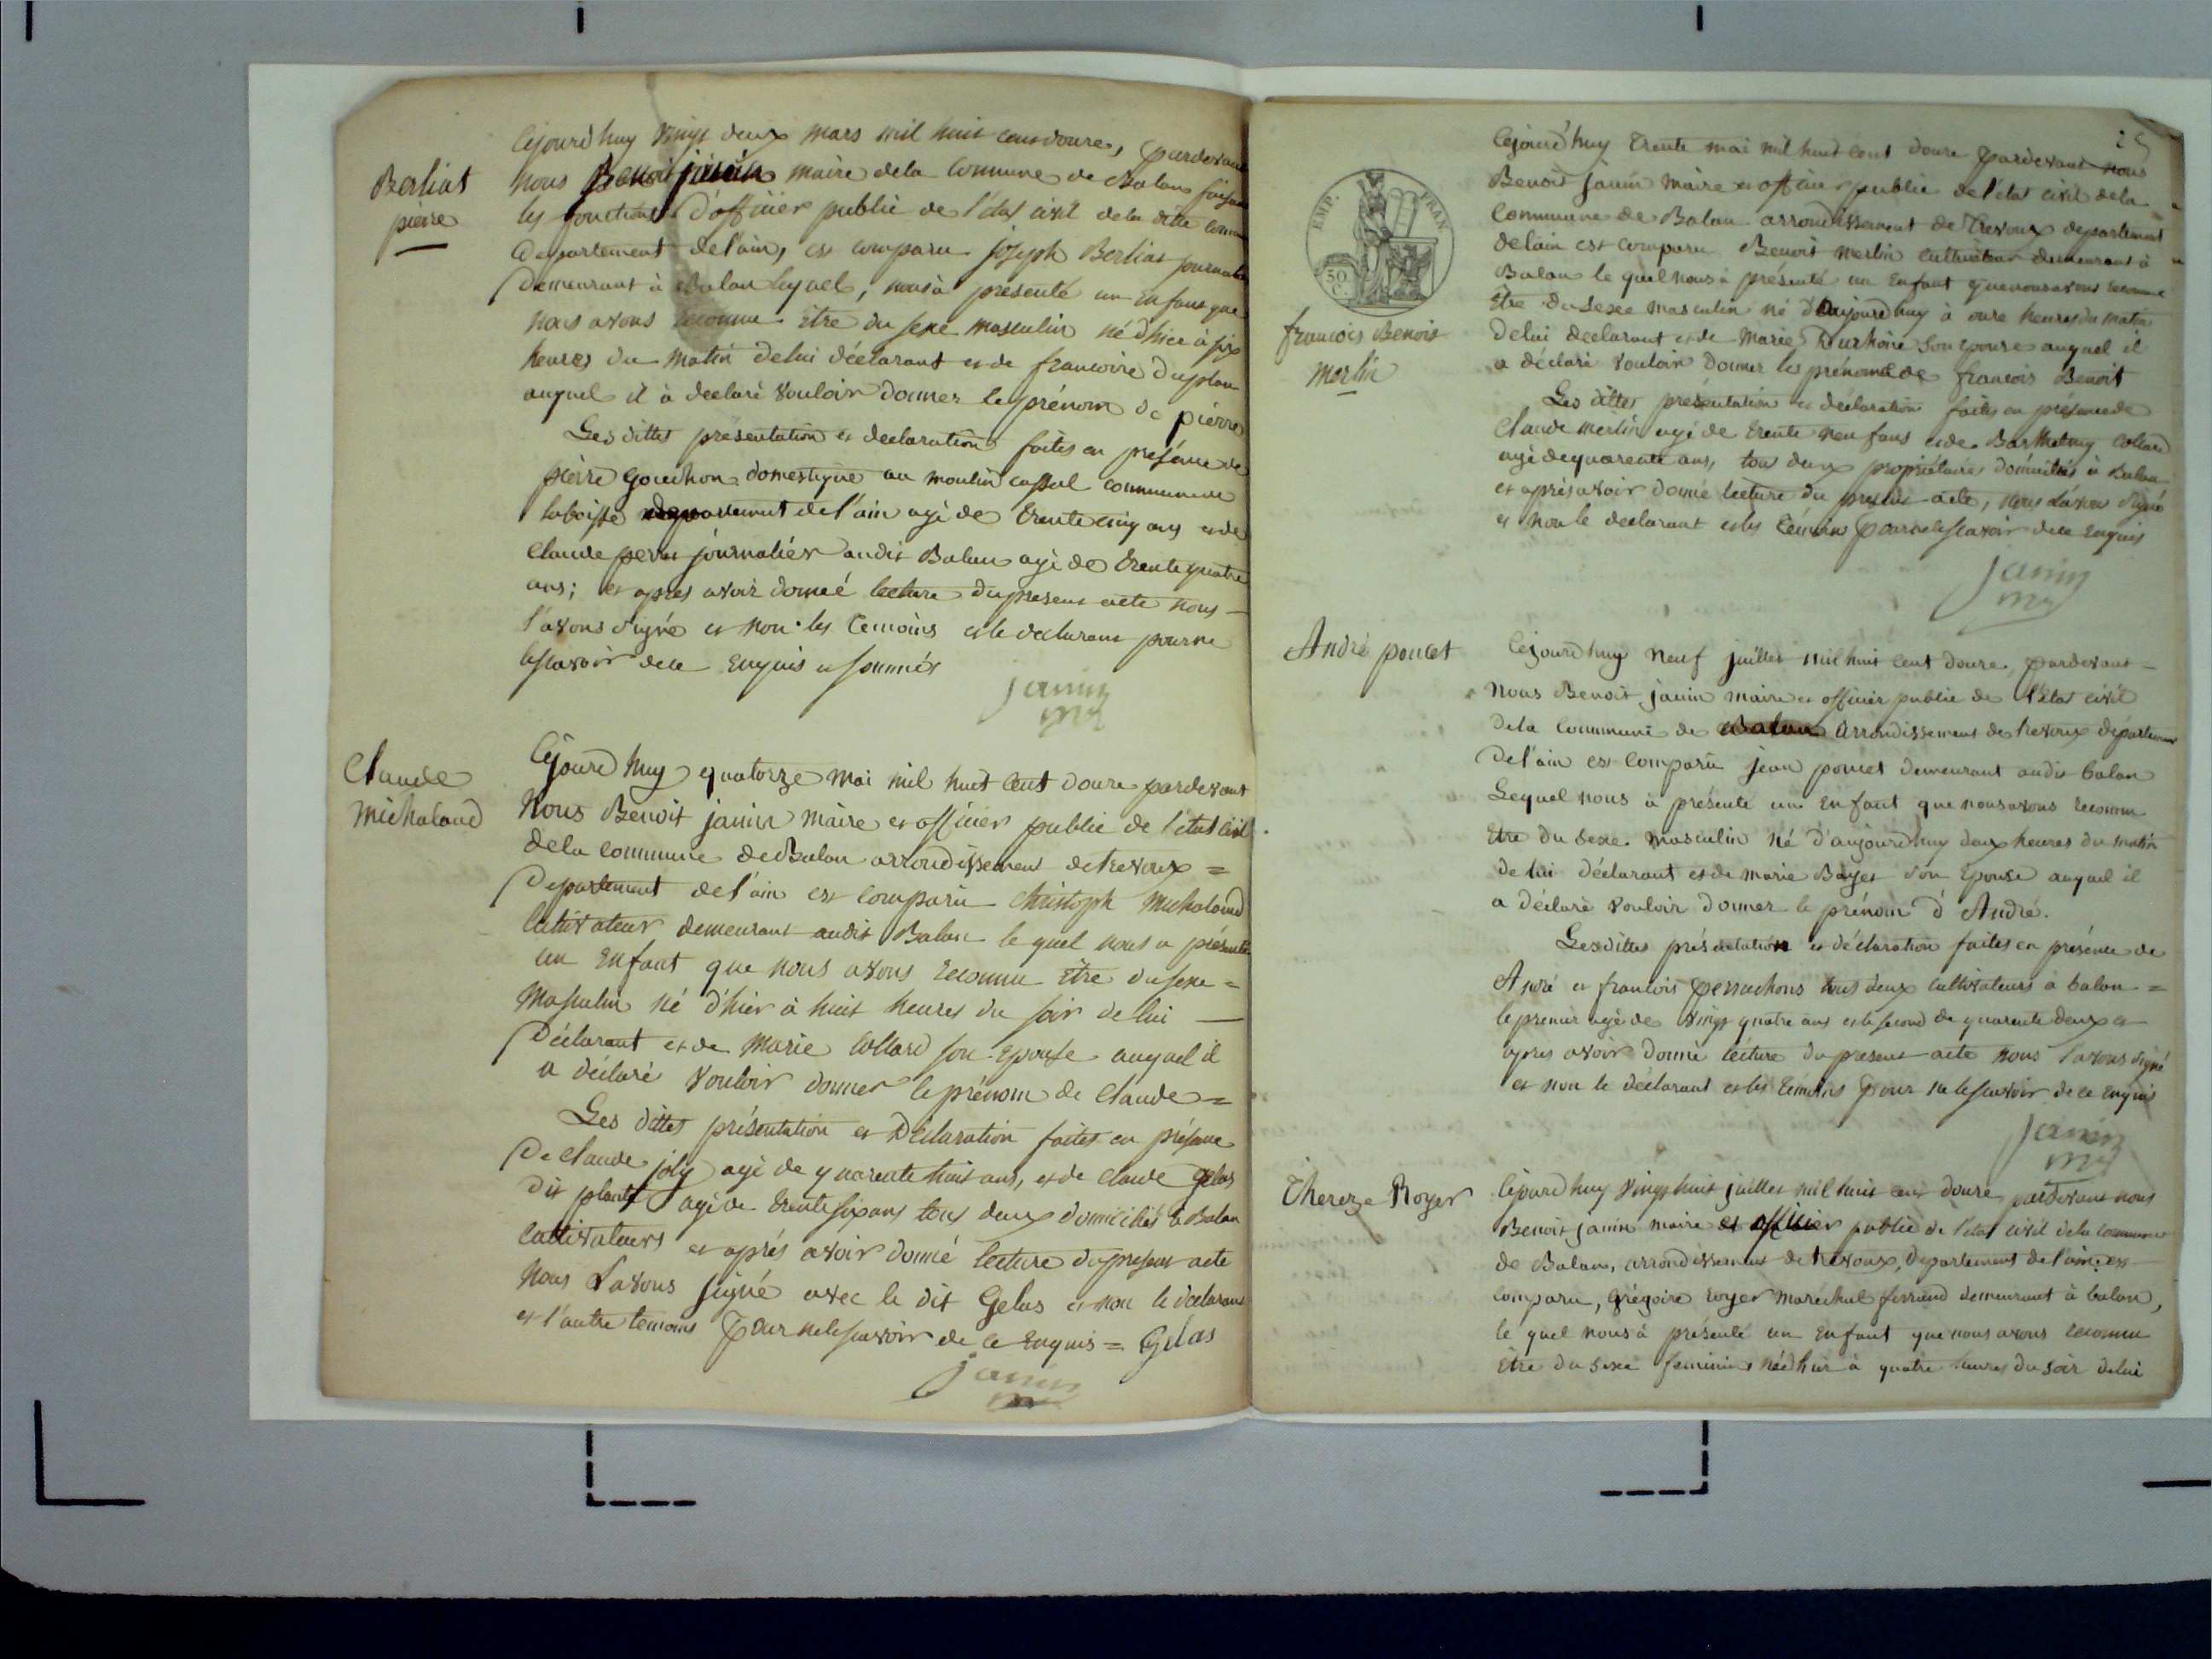 Berliat
pierre
Cejourd'huy vingt deux mars mil huit cent douze, pardevant
nous Benoit janin maire dela commune de Balan faisant
les fonctions d'officier public de l'état civil dela ditte commune
Departement delain, est comparu joseph Berliat journalier
Demeurant à Balan lequel, nous à presenté un enfant que
nous avons reconnu être du sexe masculin né d'hier à six
heures du matin delui déclarant et de francoise Duplan
auquel il à declaré vouloir donner le prénom de pierre
Les dittes présentation et declaration faites en présence de
pierre Gouchon domestique au moulin cassal commune de
laboisse departement de l'ain agé de trente cinq ans et de
Claude journalier audit Balan agé de trente quatre
ans; et après avoir donné lecture du present acte nous
l'avons signé et non les temoins et le declarant pour ne
lescavoir dece enquis et sommés
janin
mr
Claude
Michaland
Cejourd'huy quatorze mai mil huit cent douze pardevant
Nous Benoit janin maire et officier public de l'état civil
dela commune de Balan arrondissement de trevoux =
Departement de l'ain est comparu Christoph Michaland
Cultivateur demeurant audit Balan le quel nous a présenté
un Enfant que nous avons reconnu être du sexe =
Masculin né d'hier à huit heures du soir de lui
Déclarant et de Marie Collard son Epouse auquel il
a déclaré vouloir donner le prénom de Claude =
Les dittes présentation et Déclaration faites en présence
De Claude joly agé de quarente huit ans, et de Claude Gelas
dit agé de trente six ans tous deux domiciliés à Balan
Cultivateurs et après avoir donné lecture du present acte
Nous L'avons signé avec le dit Gelas et non le declarant
et l'autre temoins pour nelescavoir de ce enquis = Gelas
janin
mr
25
EMP. FRAN
50 C.
francois Benoit
Merlin
Cejourd'huy trente mai mil huit cent douze pardevant nous
Benoit janin maire et officier public de l'état civil dela
Commune de Balan arrondissement de Trevoux departement
delain est comparu Benoit Merlin cultivateur demeurant à
Balan le quel nous à présenté un Enfant que nous avons reconnu
être du sexe masculin né d'aujourd'huy à onze heures du matin
delui declarant et de Marie son epouse auquel il
a déclaré vouloir donner les prénoms de francois Benoit
Les dittes présentation et declaration faites en présence de
Claude Merlin agé de trente neuf ans et de Barthelemy Collard
agé de quarente ans, tous deux propriétaires domiciliés à Balan
et après avoir donné lecture du present acte, nous l'avons signé
et non le declarant et les témoins pour ne lescavoir de ce enquis
janin
mr
André poncet
Cejourd'huy neuf juillet mil huit cent douze, pardevant
Nous Benoit janin maire et officier public de l'état civil
Dela Commune de Balan arrondissement de trevoux département
Del'ain est comparu jean poncet demeurant audit balan
Lequel nous à présenté un Enfant que nous avons reconnu
être du sexe masculin né d'aujourd'huy deux heures du matin
de lui déclarant et de marie Bayet son epouse auquel il
a déclaré vouloir donner le prénom d'André.
Les dittes présentation et déclaration faites en présence de
André et francois perruchons tous deux cultivateurs à balon =
le premier agé de vingt quatre ans et le second de quarente deux et
apres avoir donné lécture du present acte nous l'avons signé
et non le déclarant et les témoins pour ne lescavoir de ce enquis
janin
mr
Thereze Royer
Cejourd'huy vingt huit juillet mil huit cent douze pardevant nous
Benoit janin maire et officier public de l'état civil dela commune
de Balan, arrondissement de trevoux, Departement de l'ain, est
comparu, Grégoire royer marechal ferrand demeurant à balan,
le quel nous à présenté un enfant que nous avons reconnu
être du sexe feminin née d'hier à quatre heures du soir delui